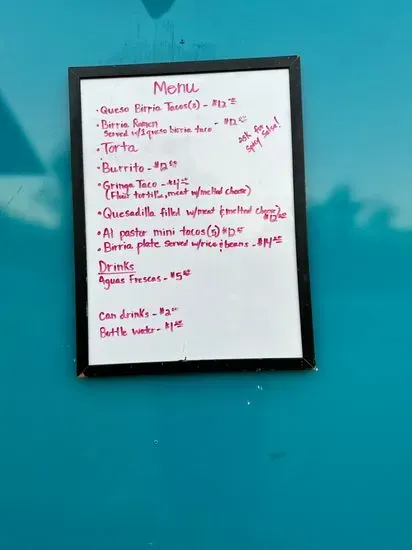 Menu
• Queso Birria Tacos(s) - $12
• Birria Ramen
Served w/1 queso birria taco - $12
ask for
spicy salsa!
• Torta
• Burrito - $12
• Gringa Taco - $4
(Flour tortilla, meat w/melted cheese)
• Quesadilla filled w/meat & melted cheese
$12
• Al pastor mini tacos(5) $12
• Birria plate served w/rice & beans - $14
Drinks
Aguas Frescas - $5
Can drinks - $2
Bottle water - $1